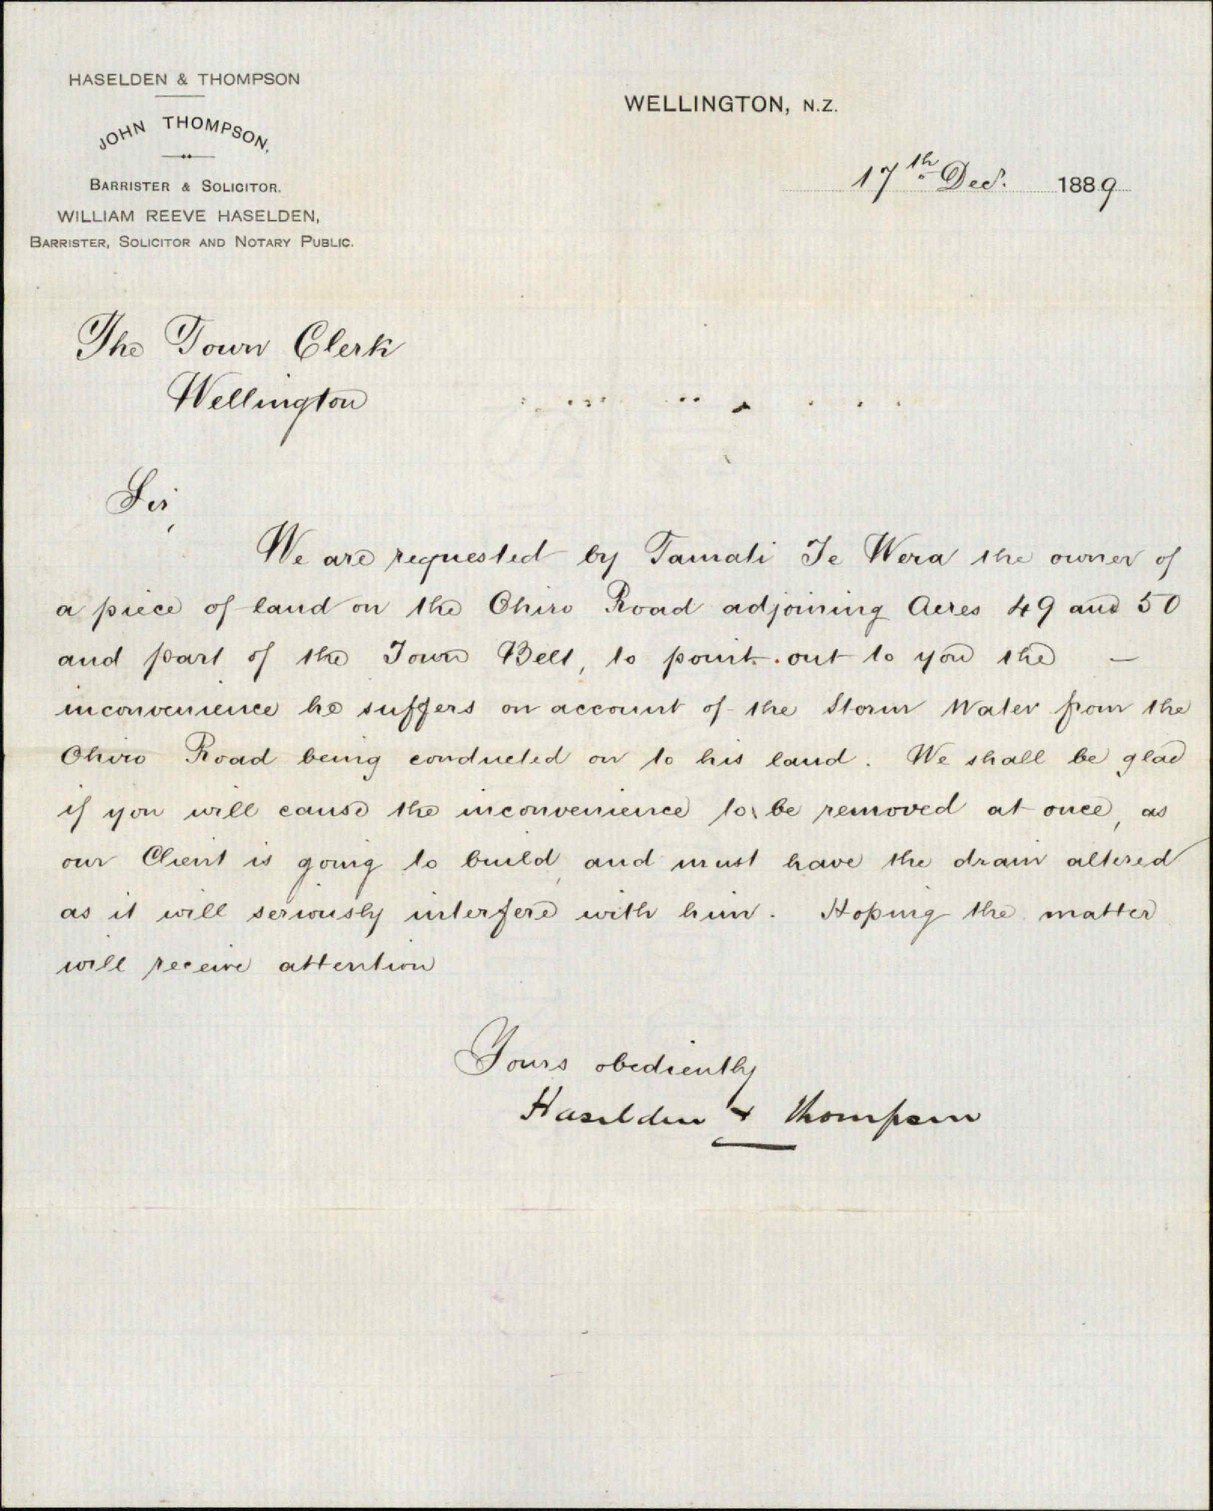 HASELDEN & THOMPSON
JOHN THOMPSON,
BARRISTER & SOLICITOR.
WILLIAM REEVE HASELDEN,
BARRISTER, SOLICITOR AND NOTARY PUBLIC.
WELLINGTON, N.Z.
17th Dec. 1889
The Town Clerk
Wellington
Sir,
We are requested by Tamati Te Wera the owner of
a piece of land on the Ohiro Road adjoining Acres 49 and 50
and part of the Town Belt, to point out to you the —
inconvenience he suffers on account of the Storm Water from the
Ohiro Road being conducted on to his land. We shall be glad
if you will cause the inconvenience to be removed at once, as
our Client is going to build, and must have the drain altered
as it will seriously interfere with him. Hoping the matter
will receive attention
Yours obediently
Haselden & Thompson